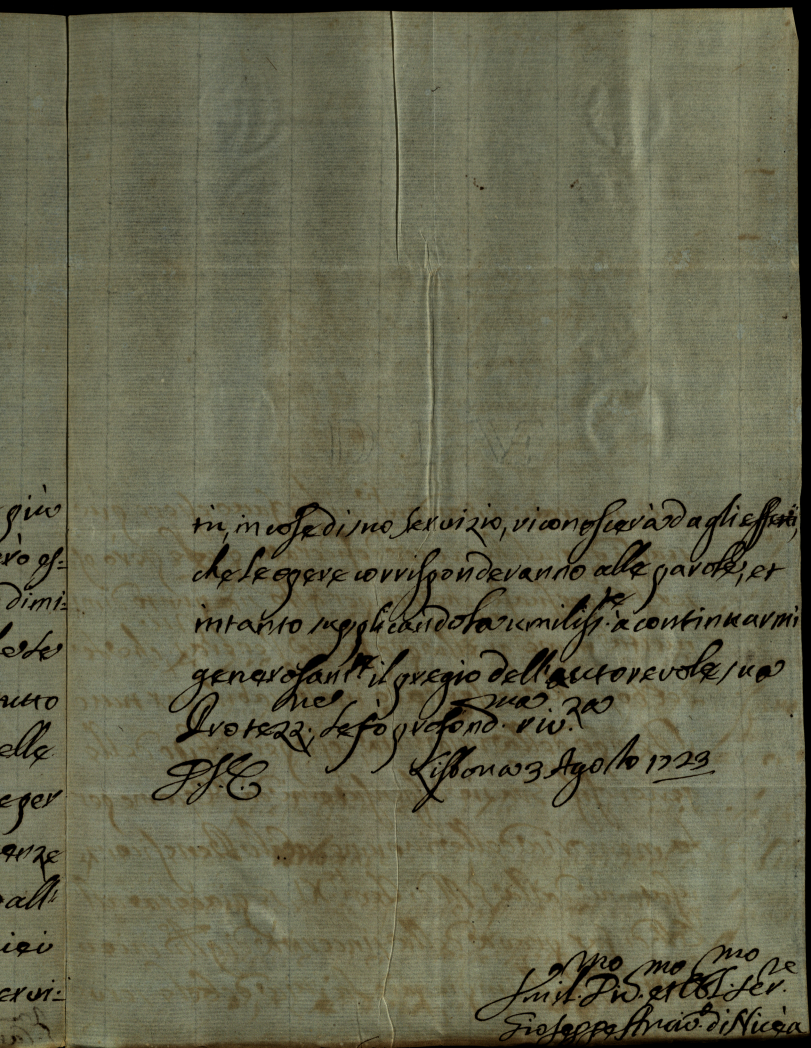 più
rò es-
dimi-
le le
utto
elle
e per
anze
all'
iei
ervi-
tti, in cose di suo servizio, riconoscerà dagli effetti,
che le opere corrisponderanno alle parole, et
intanto supplicandola umiliss.te a continuarmi
generosam.te il pregio dell'autorevole sua
Protezz.ne, le fò profond.ma riv.za
D.S.E. Lisbona 3 Agosto 1723
Umil.mo Div.mo et Obl.mo Ser.re
Gioseppe Arciv.o di Nicea